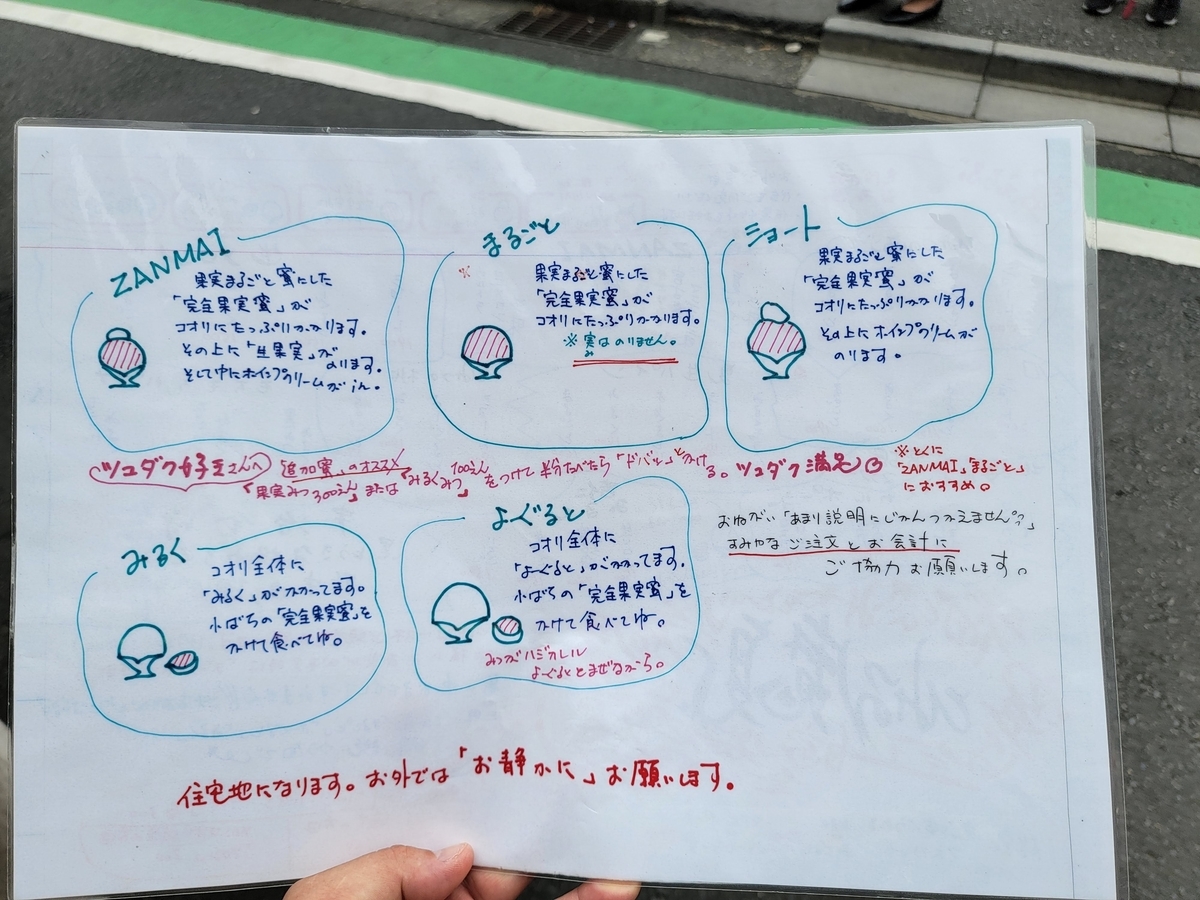 ZANMAI
果実まるごと蜜にした
「完全果実蜜」が
コオリにたっぷりかかります。
その上に「生果実」が
のります。
そして中にホイップクリームがin。
まるごと
※
果実まるごと蜜にした
「完全果実蜜」が
コオリにたっぷりかかります。
※実はのりません。
み
ショート
果実まるごと蜜にした
「完全果実蜜」が
コオリにたっぷりかかります。
その上にホイップクリームが
のります。
ツユダク好きさんへ
追加蜜のオススメ
「果実みつ300えん」または「みるくみつ100えん」をつけて半分たべたら「ドバッ」とかける。ツユダク満足
※とくに
「ZANMAI」「まるごと」
におすすめ。
みるく
コオリ全体に
「みるく」がかかってます。
小ばちの「完全果実蜜」を
かけて食べてね。
よーぐると
コオリ全体に
「よーぐると」がかかってます。
小ばちの「完全果実蜜」を
かけて食べてね。
みつがハジカレル
よーぐるととまぜながら。
おねがい「あまり説明にじかんつかえません」
すみやかなご注文とお会計に
ご協力お願いします。
住宅地になります。お外では「お静かに」お願いします。